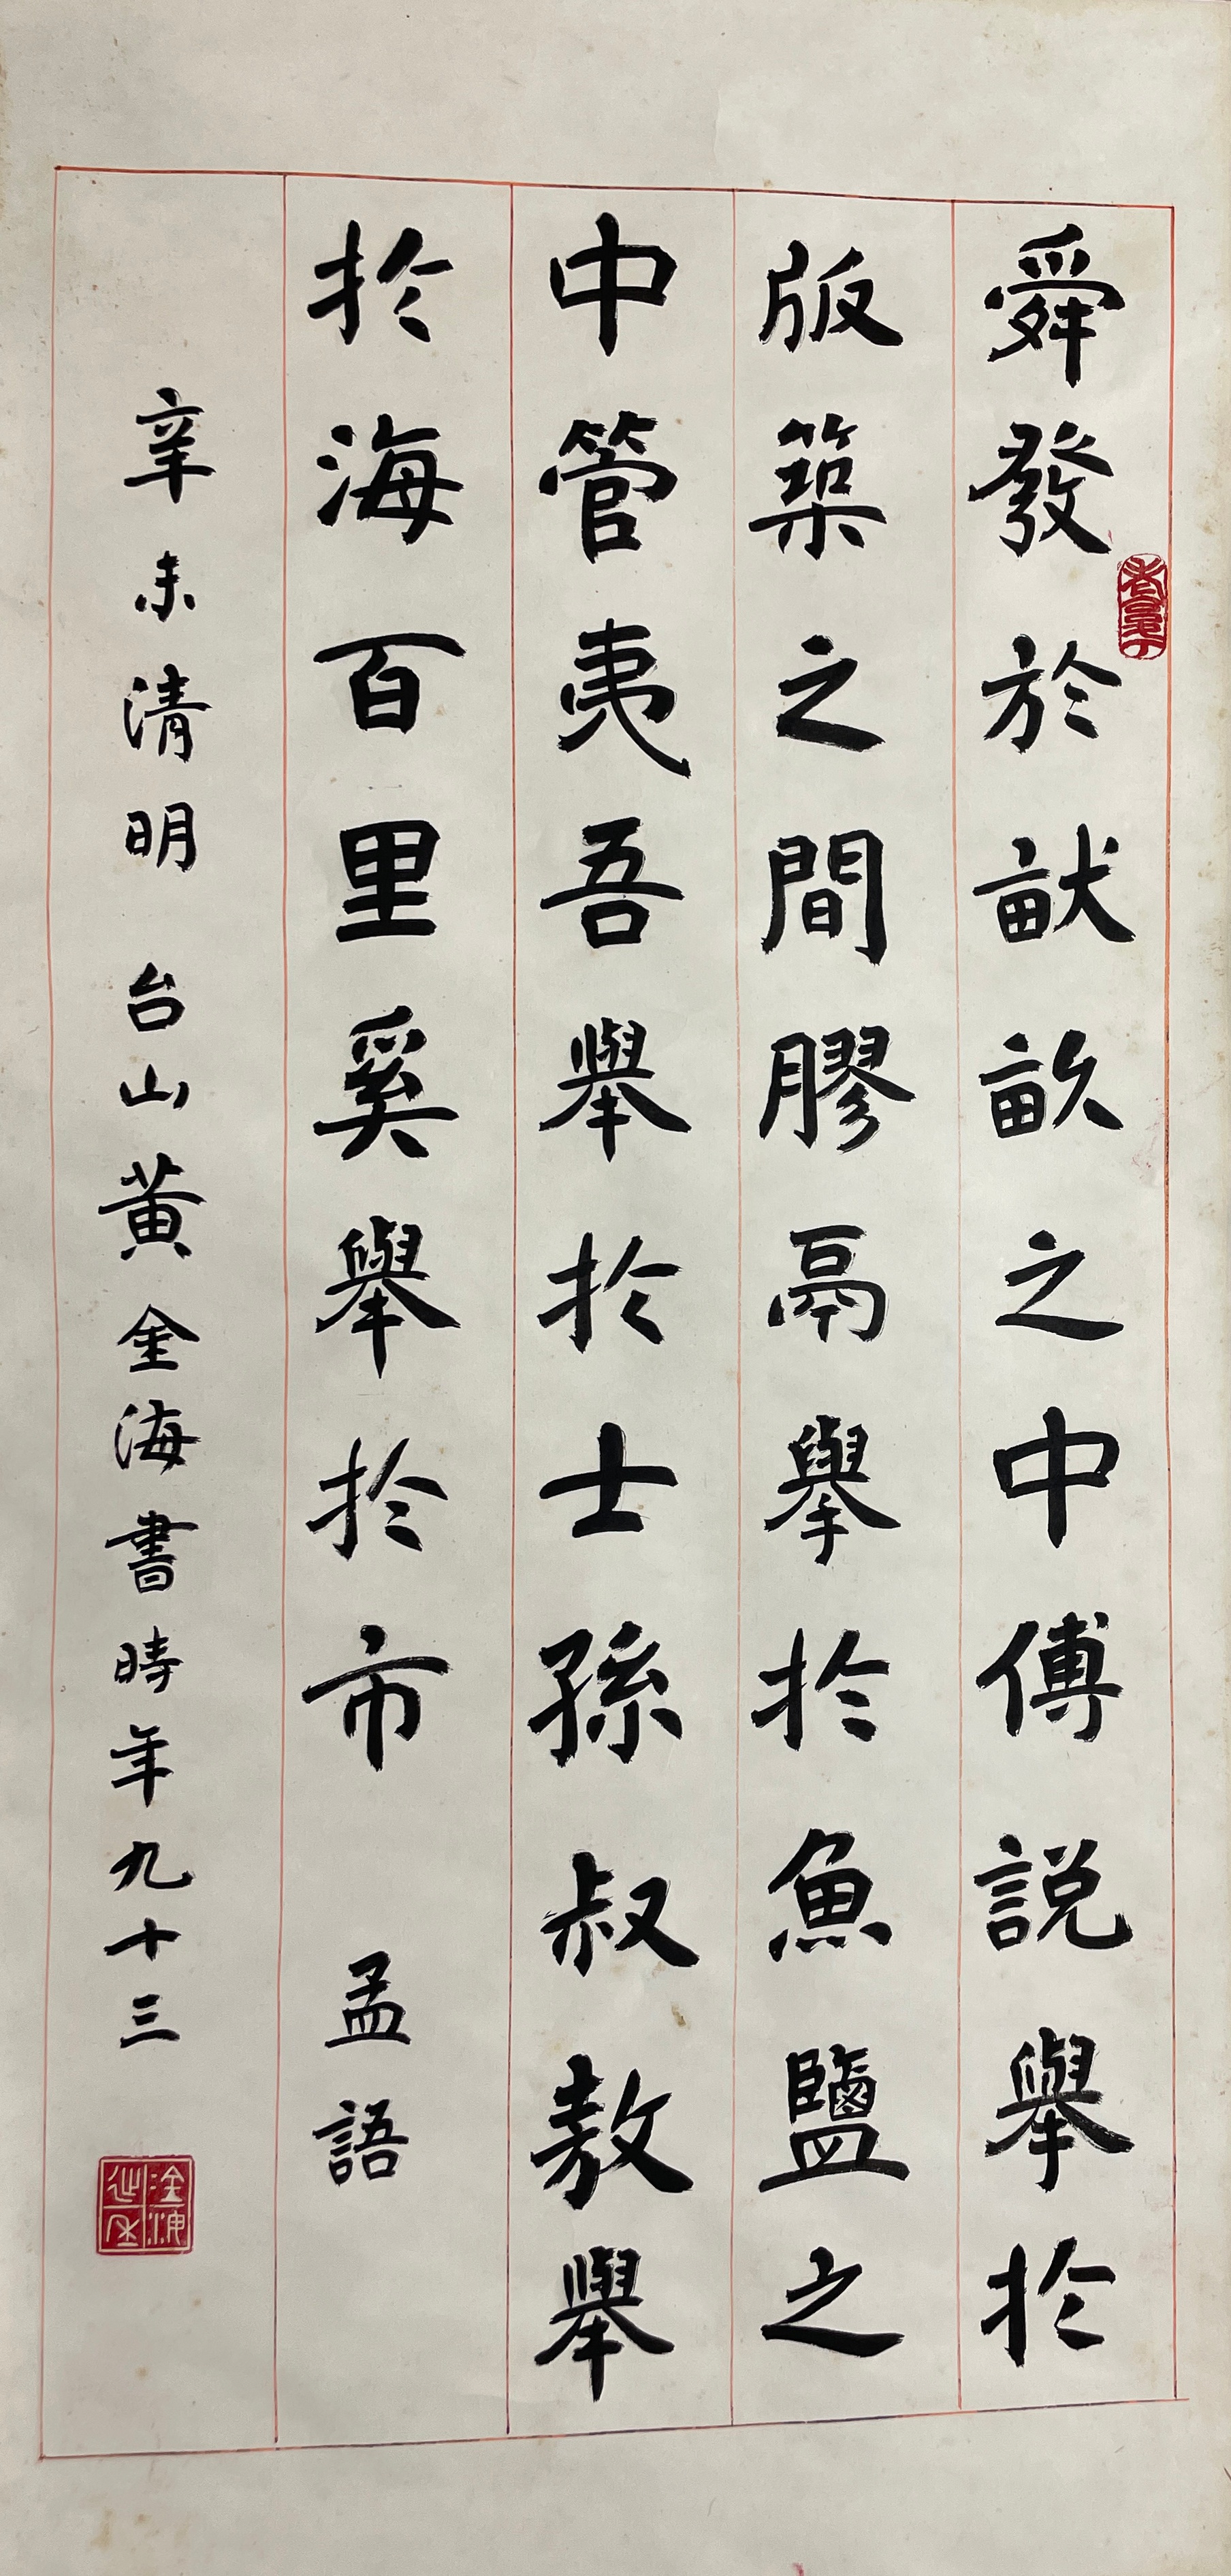 舜發於畎畝之中傅説舉於
版築之間膠鬲舉於魚鹽之
中管夷吾舉於士孫叔敖舉
於海百里奚舉於市 孟語
辛未清明 台山黃金海書時年九十三